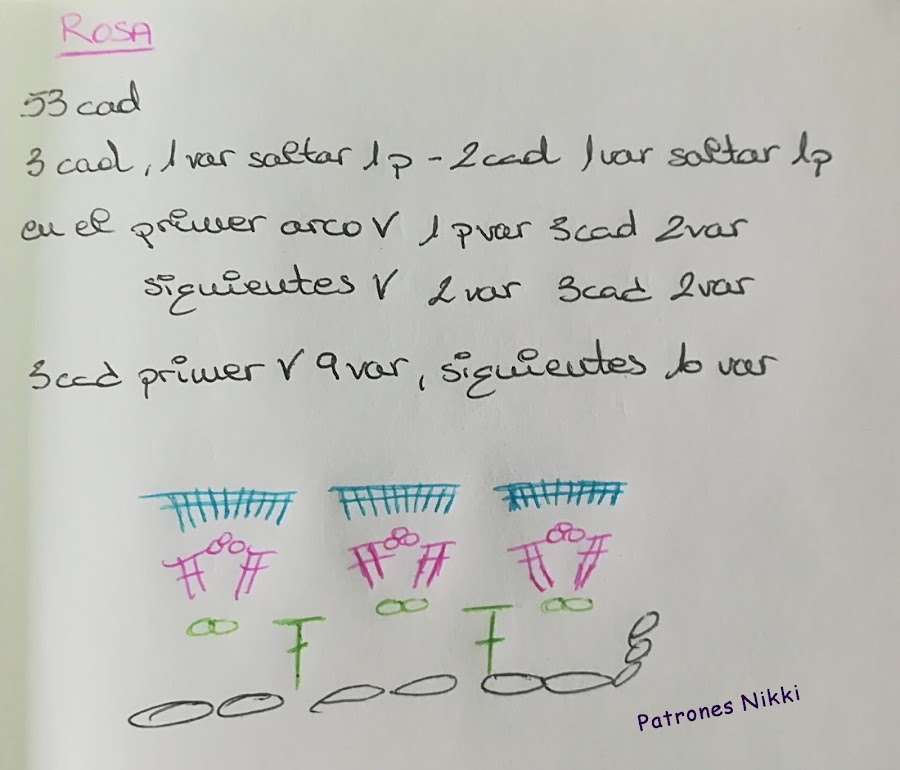 ROSA
53 cad
3 cad, 1 var saltar 1p - 2cad 1var saltar 1p
en el primer arco V 1 pvar 3cad 2var
siguientes V 2var 3cad 2var
3cad primer V 9var, siguientes 10 var
Patrones Nikki